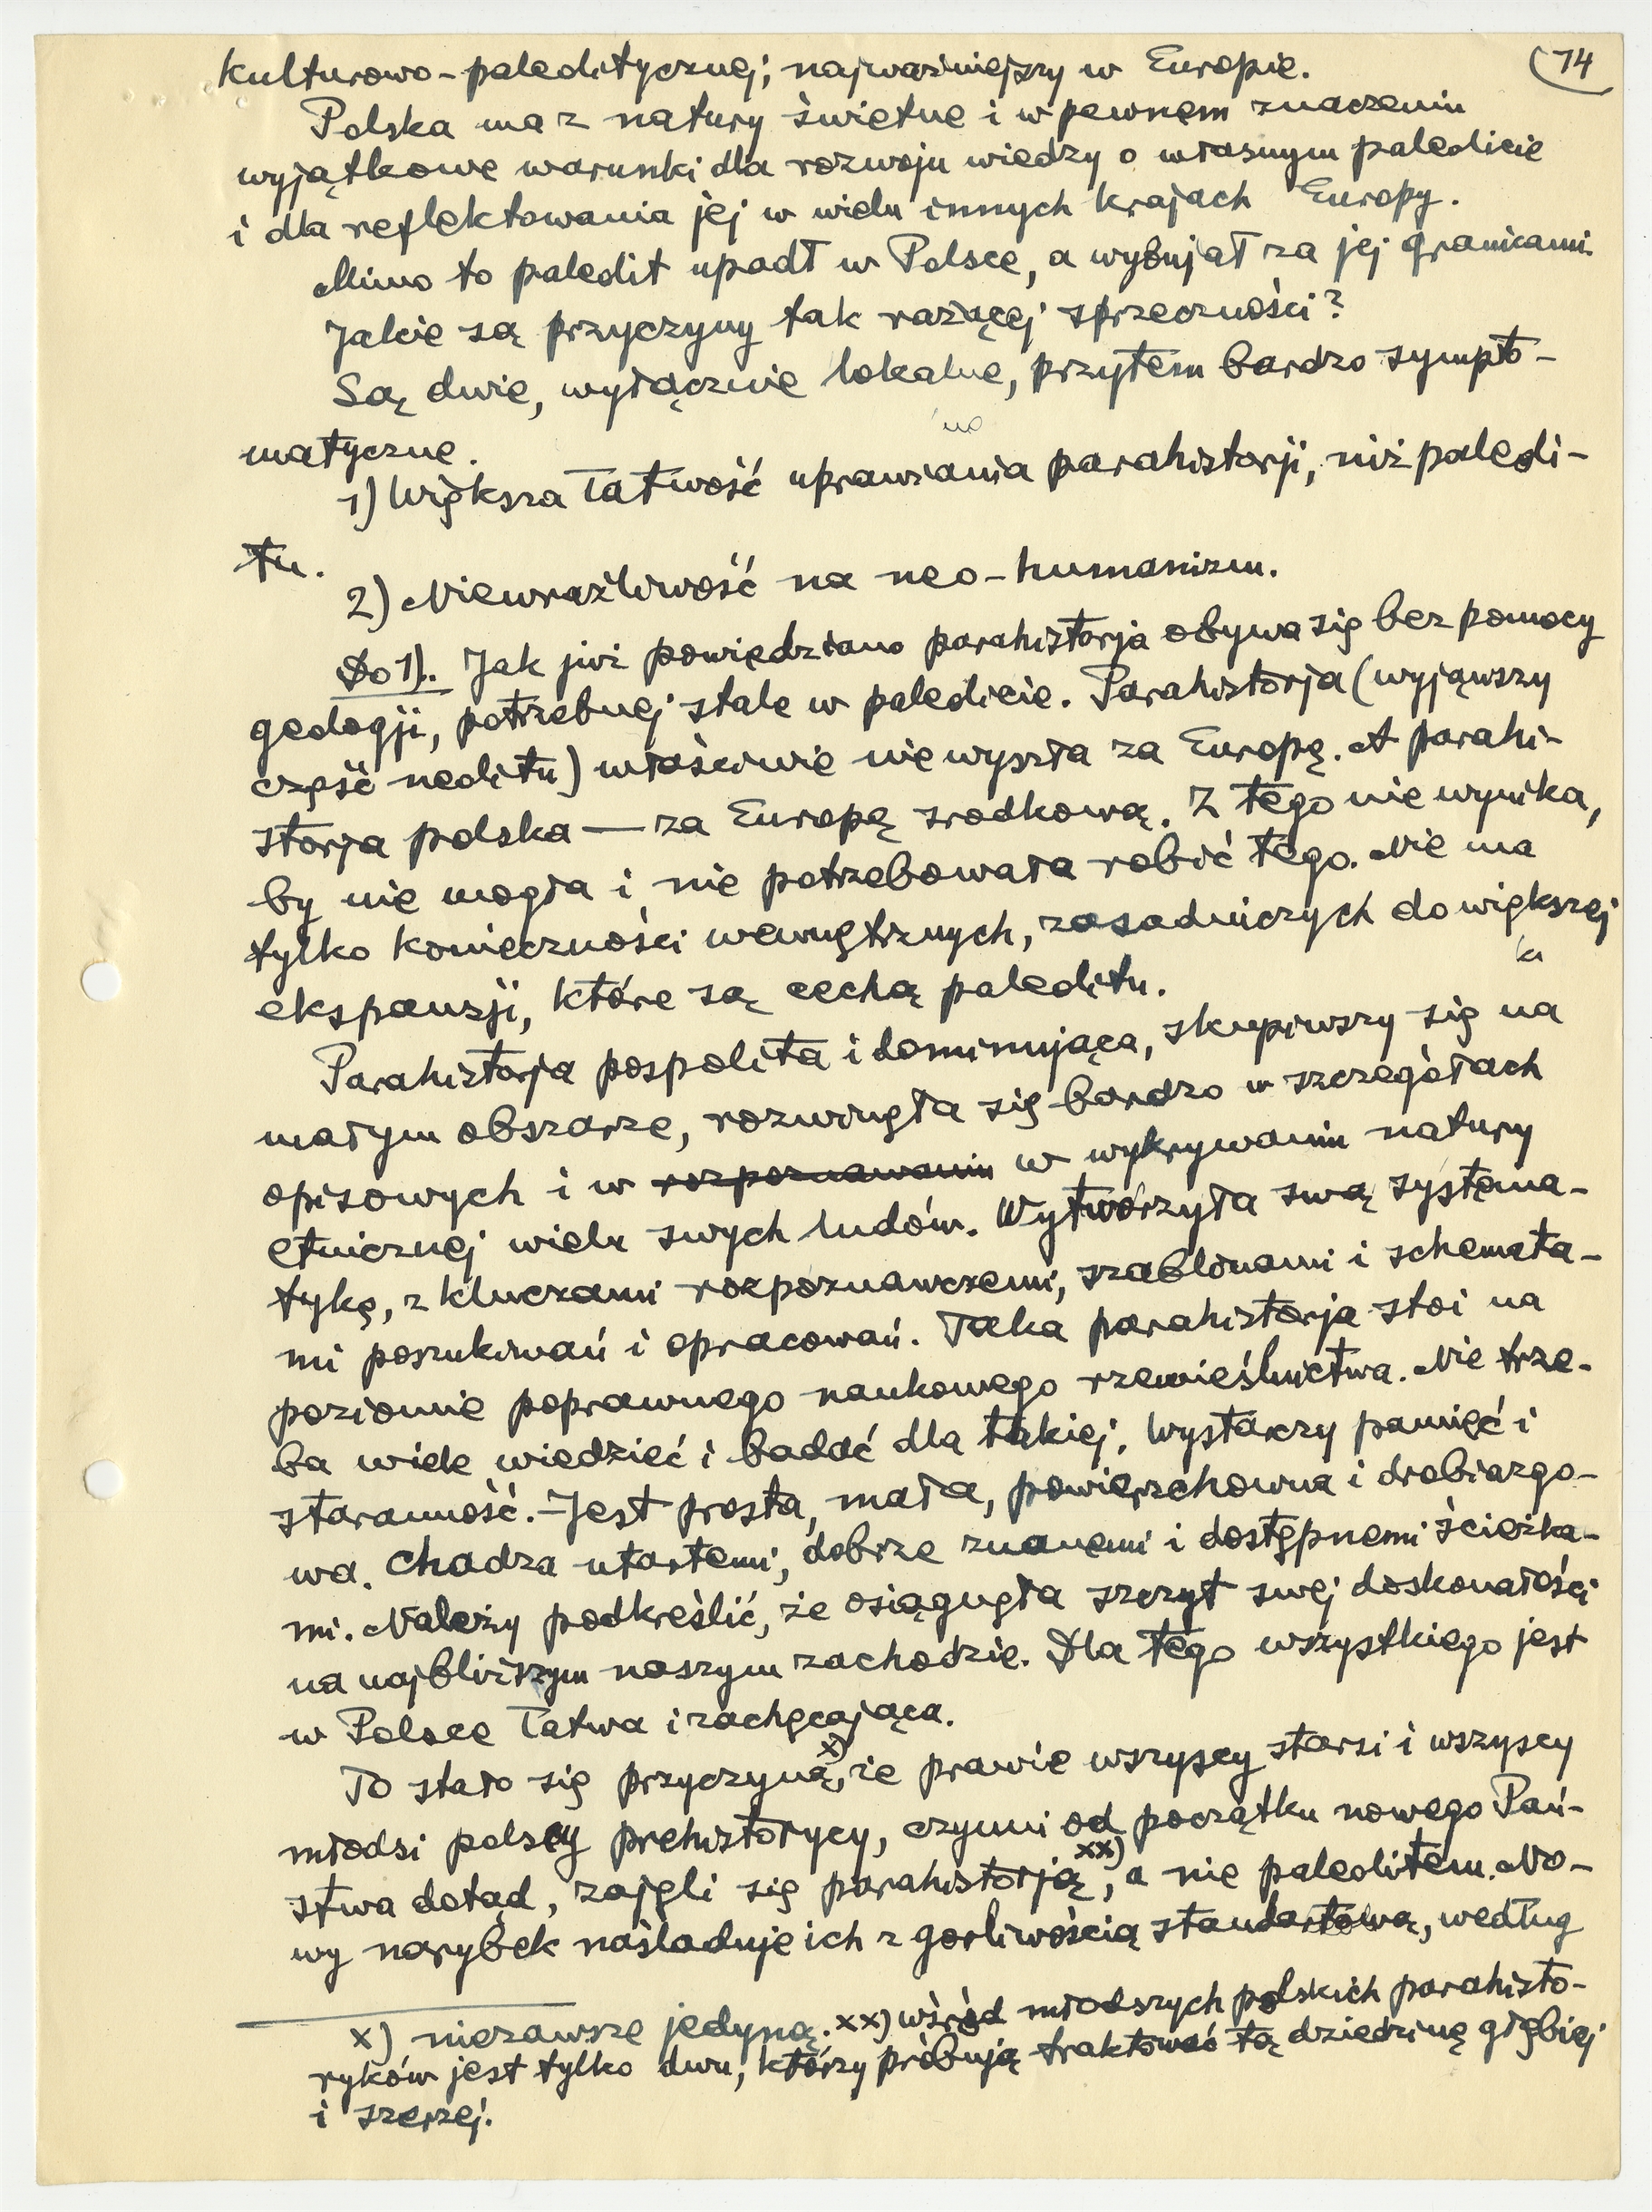 74
kulturowo-paleolitycznej; najważniejszy w Europie.
Polska ma z natury świetne i w pewnem znaczeniu
wyjątkowe warunki dla rozwoju wiedzy o własnym paleolicie
i dla reflektowania jej w wielu innych krajach Europy.
Mimo to paleolit upadł w Polsce, a wybujał za jej granicami.
Jakie są przyczyny tak rażącej sprzeczności?
Są dwie, wyłącznie lokalne, przytem bardzo sympto-
matyczne.
1) Większa łatwość uprawiania parahistorji, niż paleoli-
tu.
2) Niewrażliwość na neo-humanizm.
Do 1). Jak już powiedziano parahistorja obywa się bez pomocy
geologji, potrzebnej stale w paleolicie. Parahistorja (wyjąwszy
część neolitu) właściwie nie wyszła za Europę. A parahi-
storja polska — za Europę srodkową. Z tego nie wynika,
by nie mogła i nie potrzebowała robić tego. Nie ma
tylko konieczności wewnętrznych, zasadniczych do większej
ekspansji, które są cechą paleolitu.
Parahistorja pospolita i dominująca, skupiwszy się na
małym obszarze, rozwinęła się bardzo w szczegółach
opisowych i w rozpoznawaniu w wykrywaniu natury
etnicznej wielu swych ludów. Wytworzyła swą systema-
tykę, z kluczami rozpoznawczemi, szablonami i schemata-
mi poszukiwań i opracowań. Taka parahistorja stoi na
poziomie poprawnego naukowego rzemieślnictwa. Nie trze-
ba wiele wiedzieć i badać dla takiej. Wystarczy pamięć i
staranność. - Jest prosta, mała, powierzchowna i drobiazgo-
wa. Chadza utartemi, dobrze znanemi i dostępnemi ścieżka-
mi. Należy podkreślić, że osiągnęła szczyt swej doskonałości
na najbliższym naszym zachodzie. Dla tego wszystkiego jest
w Polsce łatwa i zachęcająca.
To stało się przyczyną x), że prawie wszyscy starsi i wszyscy
młodsi polscy prehistorycy, czynni od początku nowego Pań-
stwa dotąd, zajęli się parahistorją xx), a nie paleolitem. No-
wy narybek naśladuje ich z gorliwością standartową, według
x) niezawsze jedyną. xx) wśród młodszych polskich parahisto-
ryków jest tylko dwu, którzy próbują traktować tą dziedzinę głębiej
i szerzej.